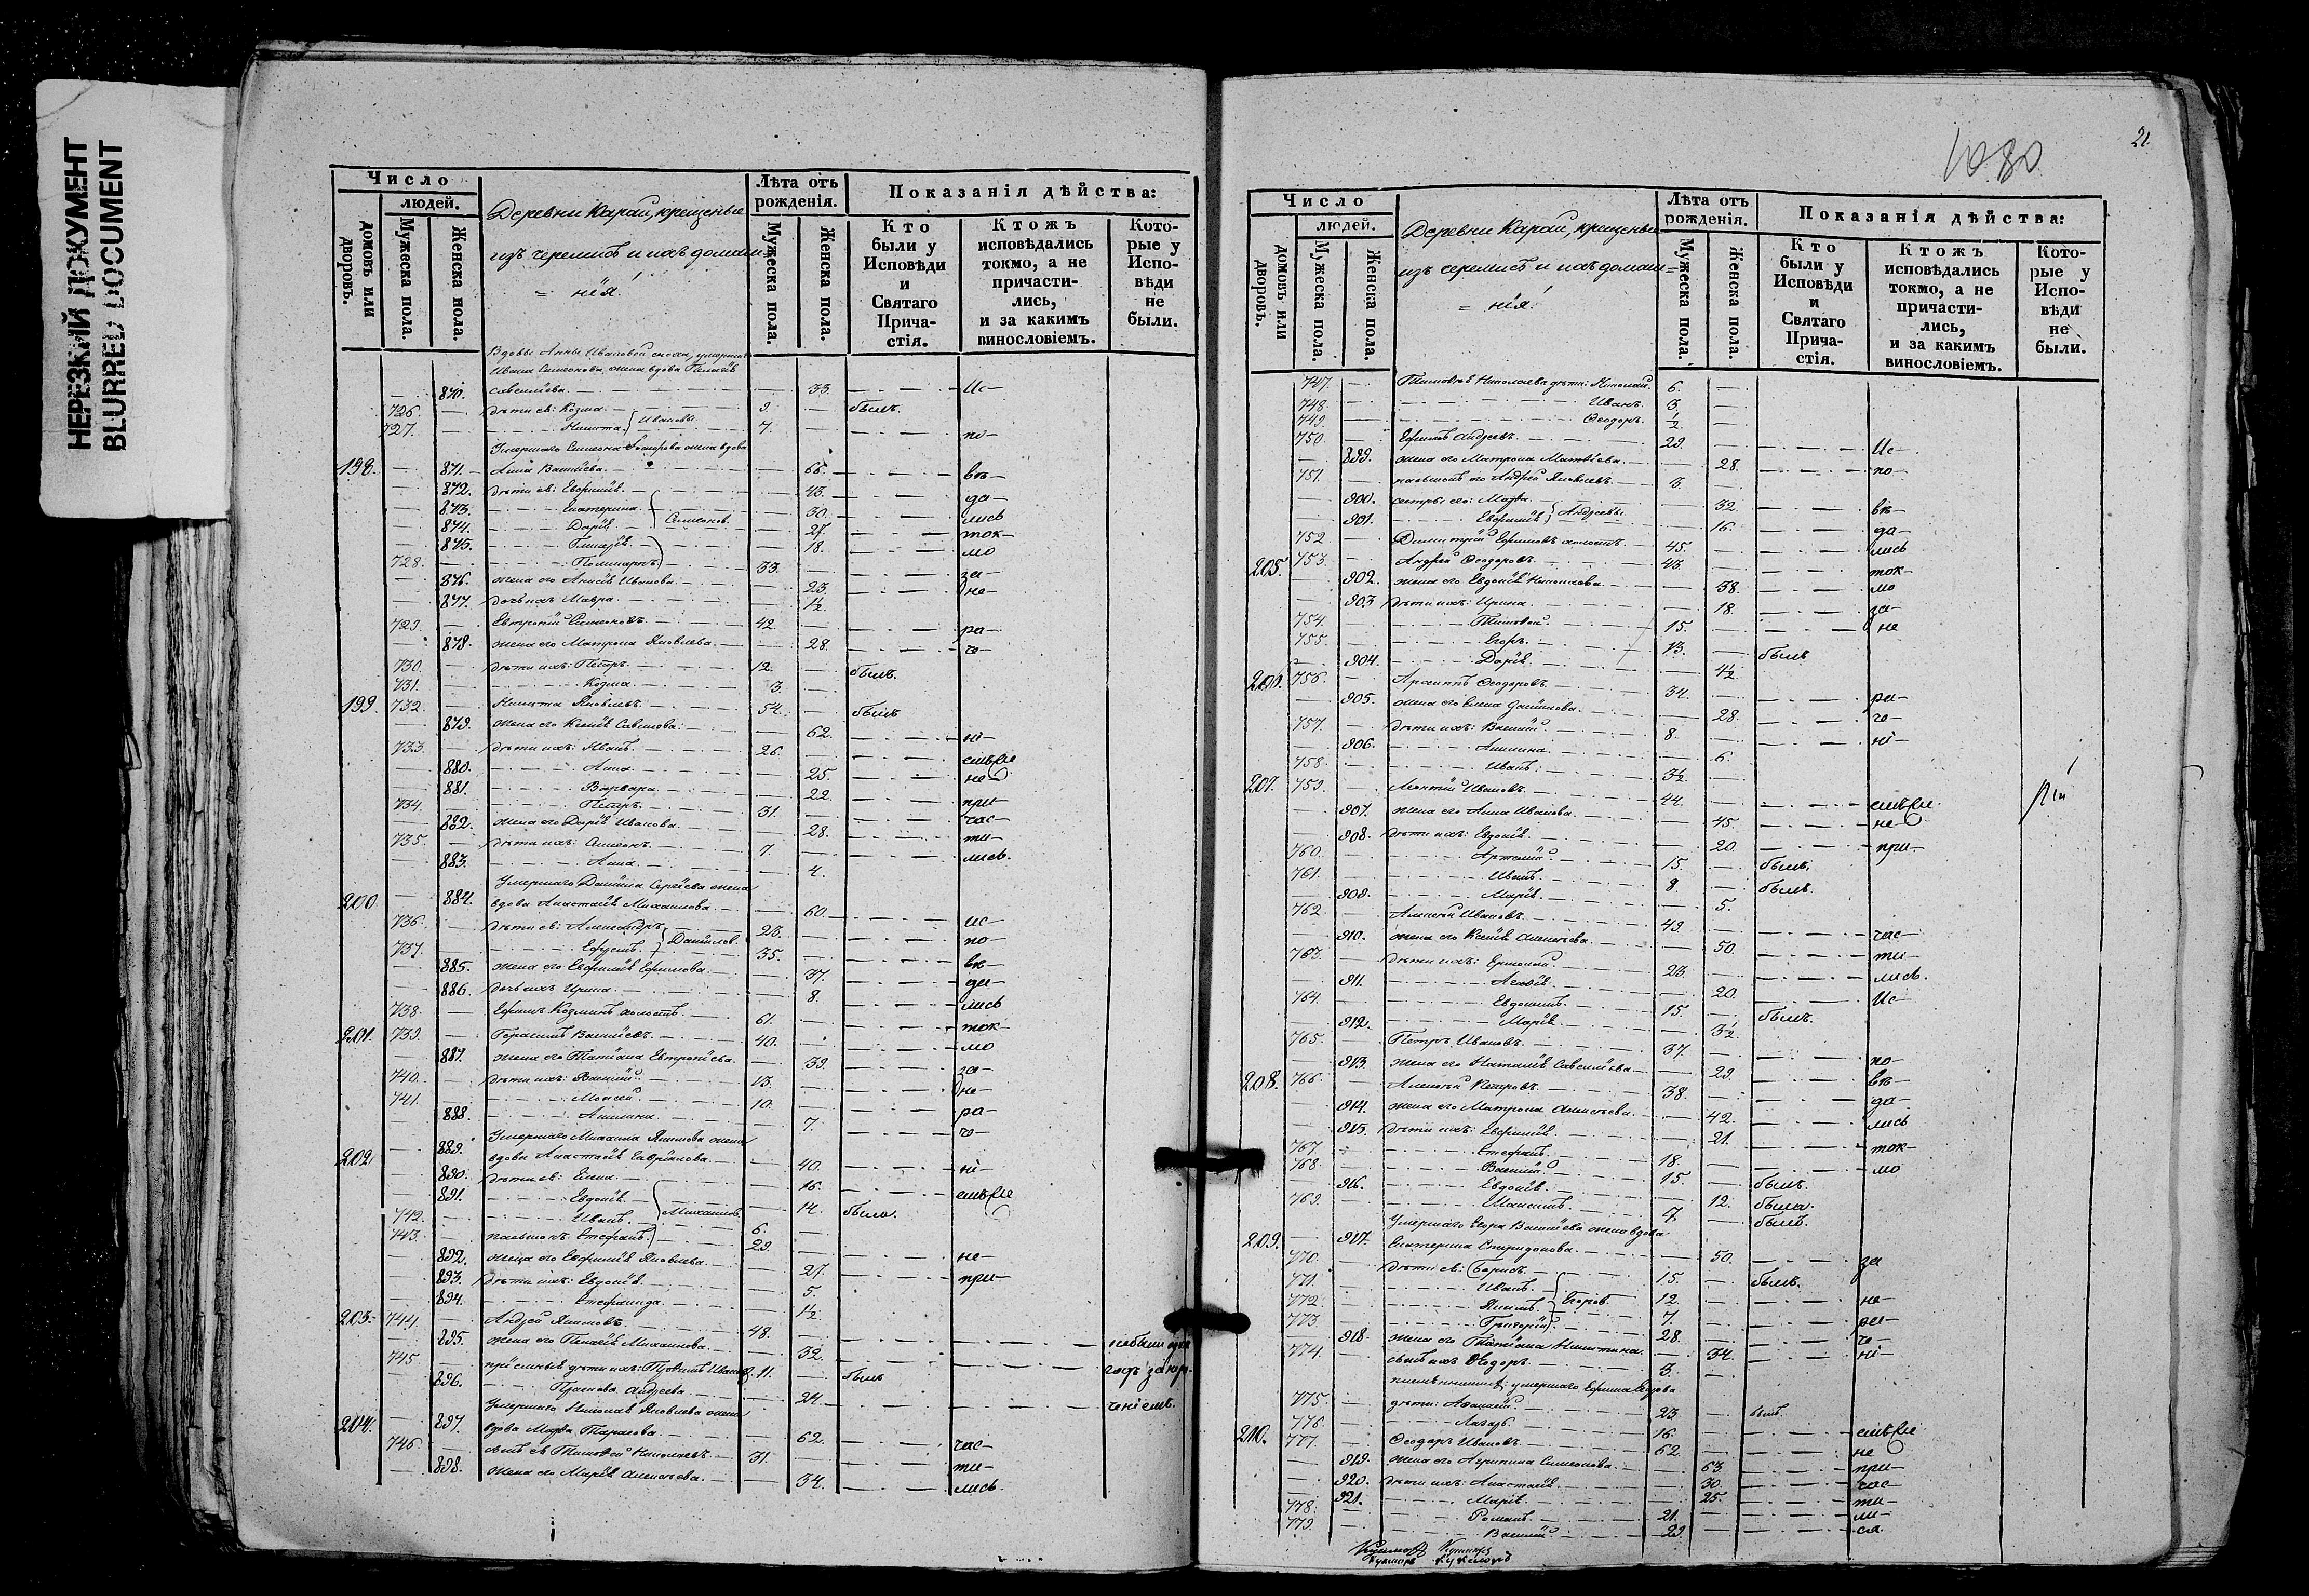 НЕРЕЗКИЙ ДОКУМЕНТ
BLURRED DOCUMENT
Число
людей.
домовъ или дворовъ.
Мужеска пола.
Женска пола.
Деревни Караи, крещеные
изъ черемисъ и ихъ домаш=
= нія:
Лѣта отъ рожденія.
Мужеска пола.
Женска пола.
Показанія дѣйства:
Кто были у Исповѣди и Святаго Причастія.
Ктожъ исповѣдались токмо, а не причастились, и за какимъ винословіемъ.
Которые у Исповѣди не были.
Вдовы Анны Ивановой снохи, умершаго
Ивана Симеонова, жена вдова Пелагія
870. Савельева. 33. Ис-
726. дѣти ея: Козма. 9. былъ.
727. Никита. Ивановы 7. по-
Умершаго Симеона жена вдова
198. 871. Анна Васильева. 66. вѣ-
872. дѣти ея: Евфимія. 43. да-
873. Екатерина. 30. лись
874. Дарія. Симеонов. 27. ток-
875. Гликерія. 18. мо
728. Поликарпъ 33. за
876. жена его Анисія Иванова. 23. не-
877. дочь ихъ Мавра. 1½.
729. Евтропій Симеоновъ. 42. ра-
878. жена его Матрона Яковлева. 28. че-
730. дѣти ихъ: Петръ. 12. былъ.
731. Козма. 3.
199. 732. Никита Яковлевъ. 54. былъ
879. жена его Ксенія Савинова. 62. ні-
733. дѣти ихъ: Иванъ. 26. емъ
880. Анна. 25. не
881. Варвара. 22. при-
734. Петръ. 31. час-
882. жена его Дарія Иванова. 28. ти-
735. дѣти ихъ: Симеонъ. 7. лись.
883. Анна. 4.
Умершаго Даніила Сергѣева жена
200 884. вдова Анастасія Михаилова. 60. ис
736. дѣти ея: Александръ 23. по-
737. Данилов. 35. вѣ-
885. жена его Евфимія Ефимова. 37. да-
886. дочь ихъ Ирина. 8. лись
738. Ефимъ Козминъ холостъ. 61. ток-
201. 739. Герасимъ Васильевъ. 40. мо
887. жена его Татіана Евтропіева. 39. за-
740. дѣти ихъ: Василій. 13. не-
741. Моисей. 10. ра-
888. Акилина. 7. че-
Умершаго Михаила Якимова жена
202. 889. вдова Анастасія Гавріилова. 40. ні-
890. дѣти ея: Елена. 16. емъ
891. Евдокія. Михаилов. 14. была.
742. Иванъ. 6.
743. пасынокъ Стефанъ. 29.
892. жена его Евфимія Яковлева. 27. не-
893. дѣти ихъ: Евдокія. 5. при-
894. Стефанида. 1½.
203. 744. Андрей Якимовъ. 48.
895. жена его Пелагія Михаилова. 32. небыли
745 пріемныя дѣти ихъ: Иванов. 11. былъ
896. Андреева. 24.
Умершаго Николая Яковлева жена
204. 897. вдова Марѳа Тарасова. 62. час-
746 сынъ ея Тимоѳей Николаевъ. 31. ти-
898. жена его Марія Алексѣева. 34. лись.
1080
21
Число
людей.
домовъ или дворовъ.
Мужеска пола.
Женска пола.
Деревни Караи, крещеные
изъ черемисъ и ихъ домаш=
= нія:
Лѣта отъ рожденія.
Мужеска пола.
Женска пола.
Показанія дѣйства:
Кто были у Исповѣди и Святаго Причастія.
Ктожъ исповѣдались токмо, а не причастились, и за какимъ винословіемъ.
Которые у Исповѣди не были.
747. Тимоѳея Николаева дѣти: Николай. 6.
748. Иванъ. 3.
749. Ѳеодоръ. ½.
750. Ефимъ Андреевъ. 29. Ис-
899. жена его Матрона Матвѣева. 28. по-
751. пасынокъ его Андрей Яковлевъ. 3.
900. сестры его: Марѳа. 32. вѣ-
901. Евфимія Андреевы. 16. да-
752. Димитрій Ефимовъ холостъ. 45. лись
205. 753. Андрей Ѳеодоровъ. 43. ток-
902. жена его Евдокія Николаева. 38. мо
903 дѣти ихъ: Ирина. 18. за-
754. Тимоѳей. 15. не
755. Егоръ. 13. былъ
904. Дарія. 4½.
206. 756. Архиппъ Ѳеодоровъ. 34. ра-
905. жена его Елена Даниилова. 28. че-
757. дѣти ихъ: Василій. 8. ні-
906. Акилина. 6.
758. Иванъ. 3½.
207. 759. Леонтій Ивановъ. 44. емъ
907. жена его Анна Иванова. 45. не-
908. дѣти ихъ: Евдокія. 20. при-
760. Артемій. 15. былъ.
761. Иванъ. 8. былъ.
909. Марія. 5.
762. Алексѣй Ивановъ. 49. час-
910. жена его Ксенія Алексѣева. 50. ти-
763. дѣти ихъ: Ермолай. 23. лись.
911. Агафія. 20. Ис-
764. Евдокимъ. 15 былъ.
912. Марія. 3½.
765. Петръ Ивановъ. 37. по-
913. жена его Наталія Савельева. 29. вѣ-
208. 766. Алексѣй Петровъ. 38. да-
914. жена его Матрона Алексѣева. 42. лись
915. дѣти ихъ: Евфимія. 21. ток-
767. Стефанъ. 18. мо
768. Василій. 15. былъ.
916. Евдокія. 12. была.
769. Максимъ. 7. былъ.
Умершаго Егора Васильева жена вдова
209. 917. Екатерина Спиридонова. 50. за
770. дѣти ея: Борисъ. 15. былъ.
771. Иванъ. Егоров. 12. не-
772. Якимъ. 7. ра-
773. Григорій. 28. че-
918. жена его Татіана Никитина. 34. ні-
774. сынъ ихъ Ѳеодоръ. 3.
племянники: умершаго Ефима Егорова
775. дѣти: Аѳанасій. 23 былъ.
776 Лазарь. 16. емъ
210. 777. Ѳеодоръ Ивановъ. 62. не
919. жена его Агрипина Симеонова. 63. при-
920. дѣти ихъ: Анастасія. 30. час-
921. Марія. 25. ти-
778. Романъ. 21. ли-
779. Василій. 29. сь.